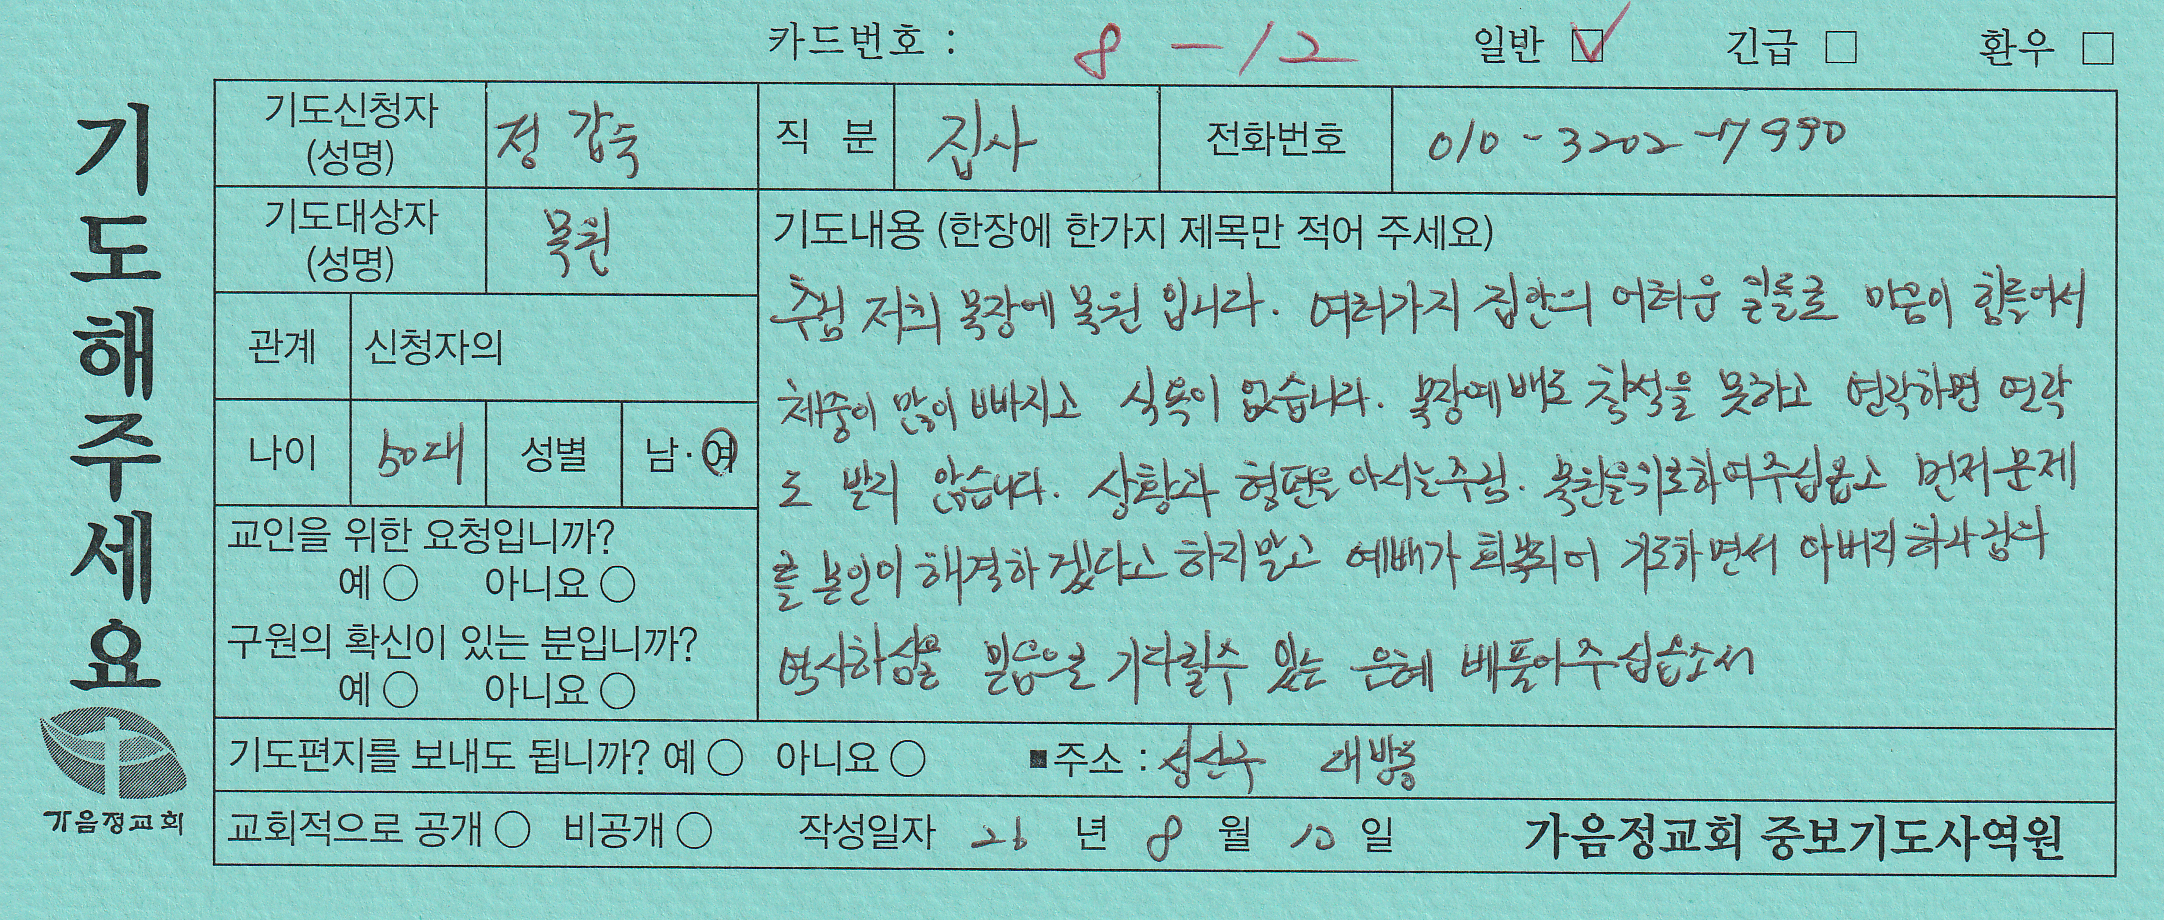 카드번호 : 8 - 12 일반 ☑ 긴급 □ 환우 □
기도해주세요
기도신청자 (성명) 정갑숙 직 분 집사 전화번호 010-3202-7990
기도대상자 (성명) 목원
기도내용 (한장에 한가지 제목만 적어 주세요)
주님 저희 목장에 목원 입니다. 여러가지 집안의 어려운 일들로 마음이 힘들어서
체중이 많이 빠지고 식욕이 없습니다. 목장예배도 참석을 못하고 연락하면 연락
도 받지 않습니다. 상황과 형편을 아시는주님. 목원을위로하여주십옵고 먼저문제
를 본인이 해결하겠다고 하지말고 예배가 회복되어 기도하면서 아버지하나님의
역사하심을 믿음으로 기다릴수 있는 은혜 베풀어주십옵소서
관계 신청자의
나이 50대 성별 남·여
교인을 위한 요청입니까?
예 ○ 아니요 ○
구원의 확신이 있는 분입니까?
예 ○ 아니요 ○
기도편지를 보내도 됩니까? 예 ○ 아니요 ○ ■주소 : 성산구 대방동
교회적으로 공개 ○ 비공개 ○ 작성일자 26 년 8 월 10 일 가음정교회 중보기도사역원
가음정교회